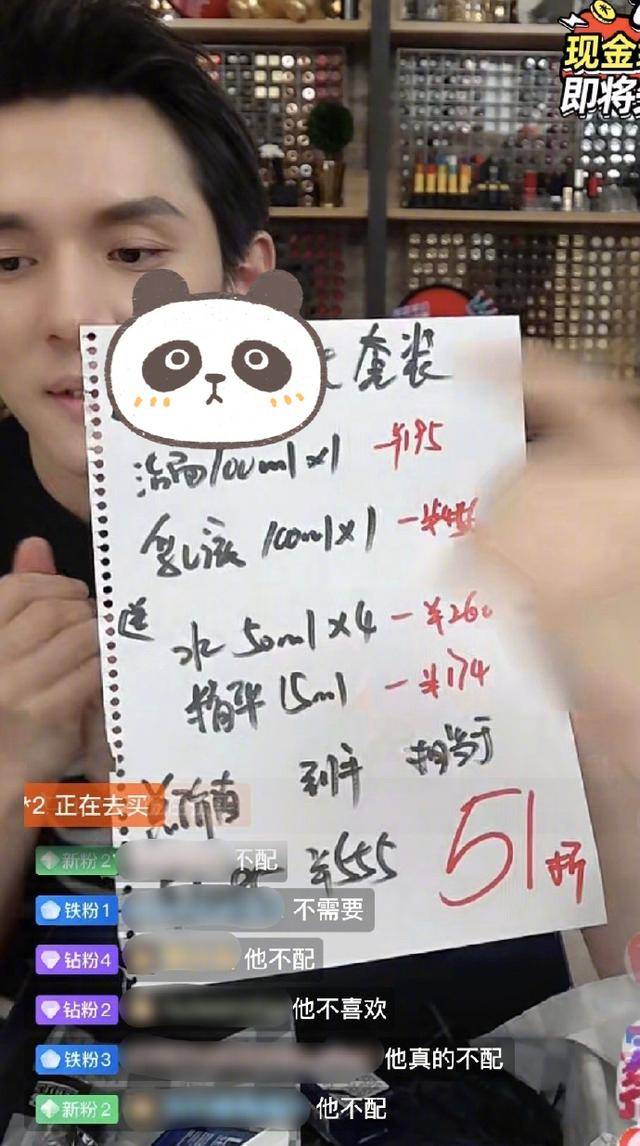 现金
即将
套装
洁面100ml×1 —¥195
乳液100ml×1 —¥
送
水50ml×4 —¥260
精华15ml —¥174
到手 相当于
¥555
51折
*2 正在去买
新粉2 不配
铁粉1 不需要
钻粉4 他不配
钻粉2 他不喜欢
铁粉3 他真的不配
新粉2 他不配